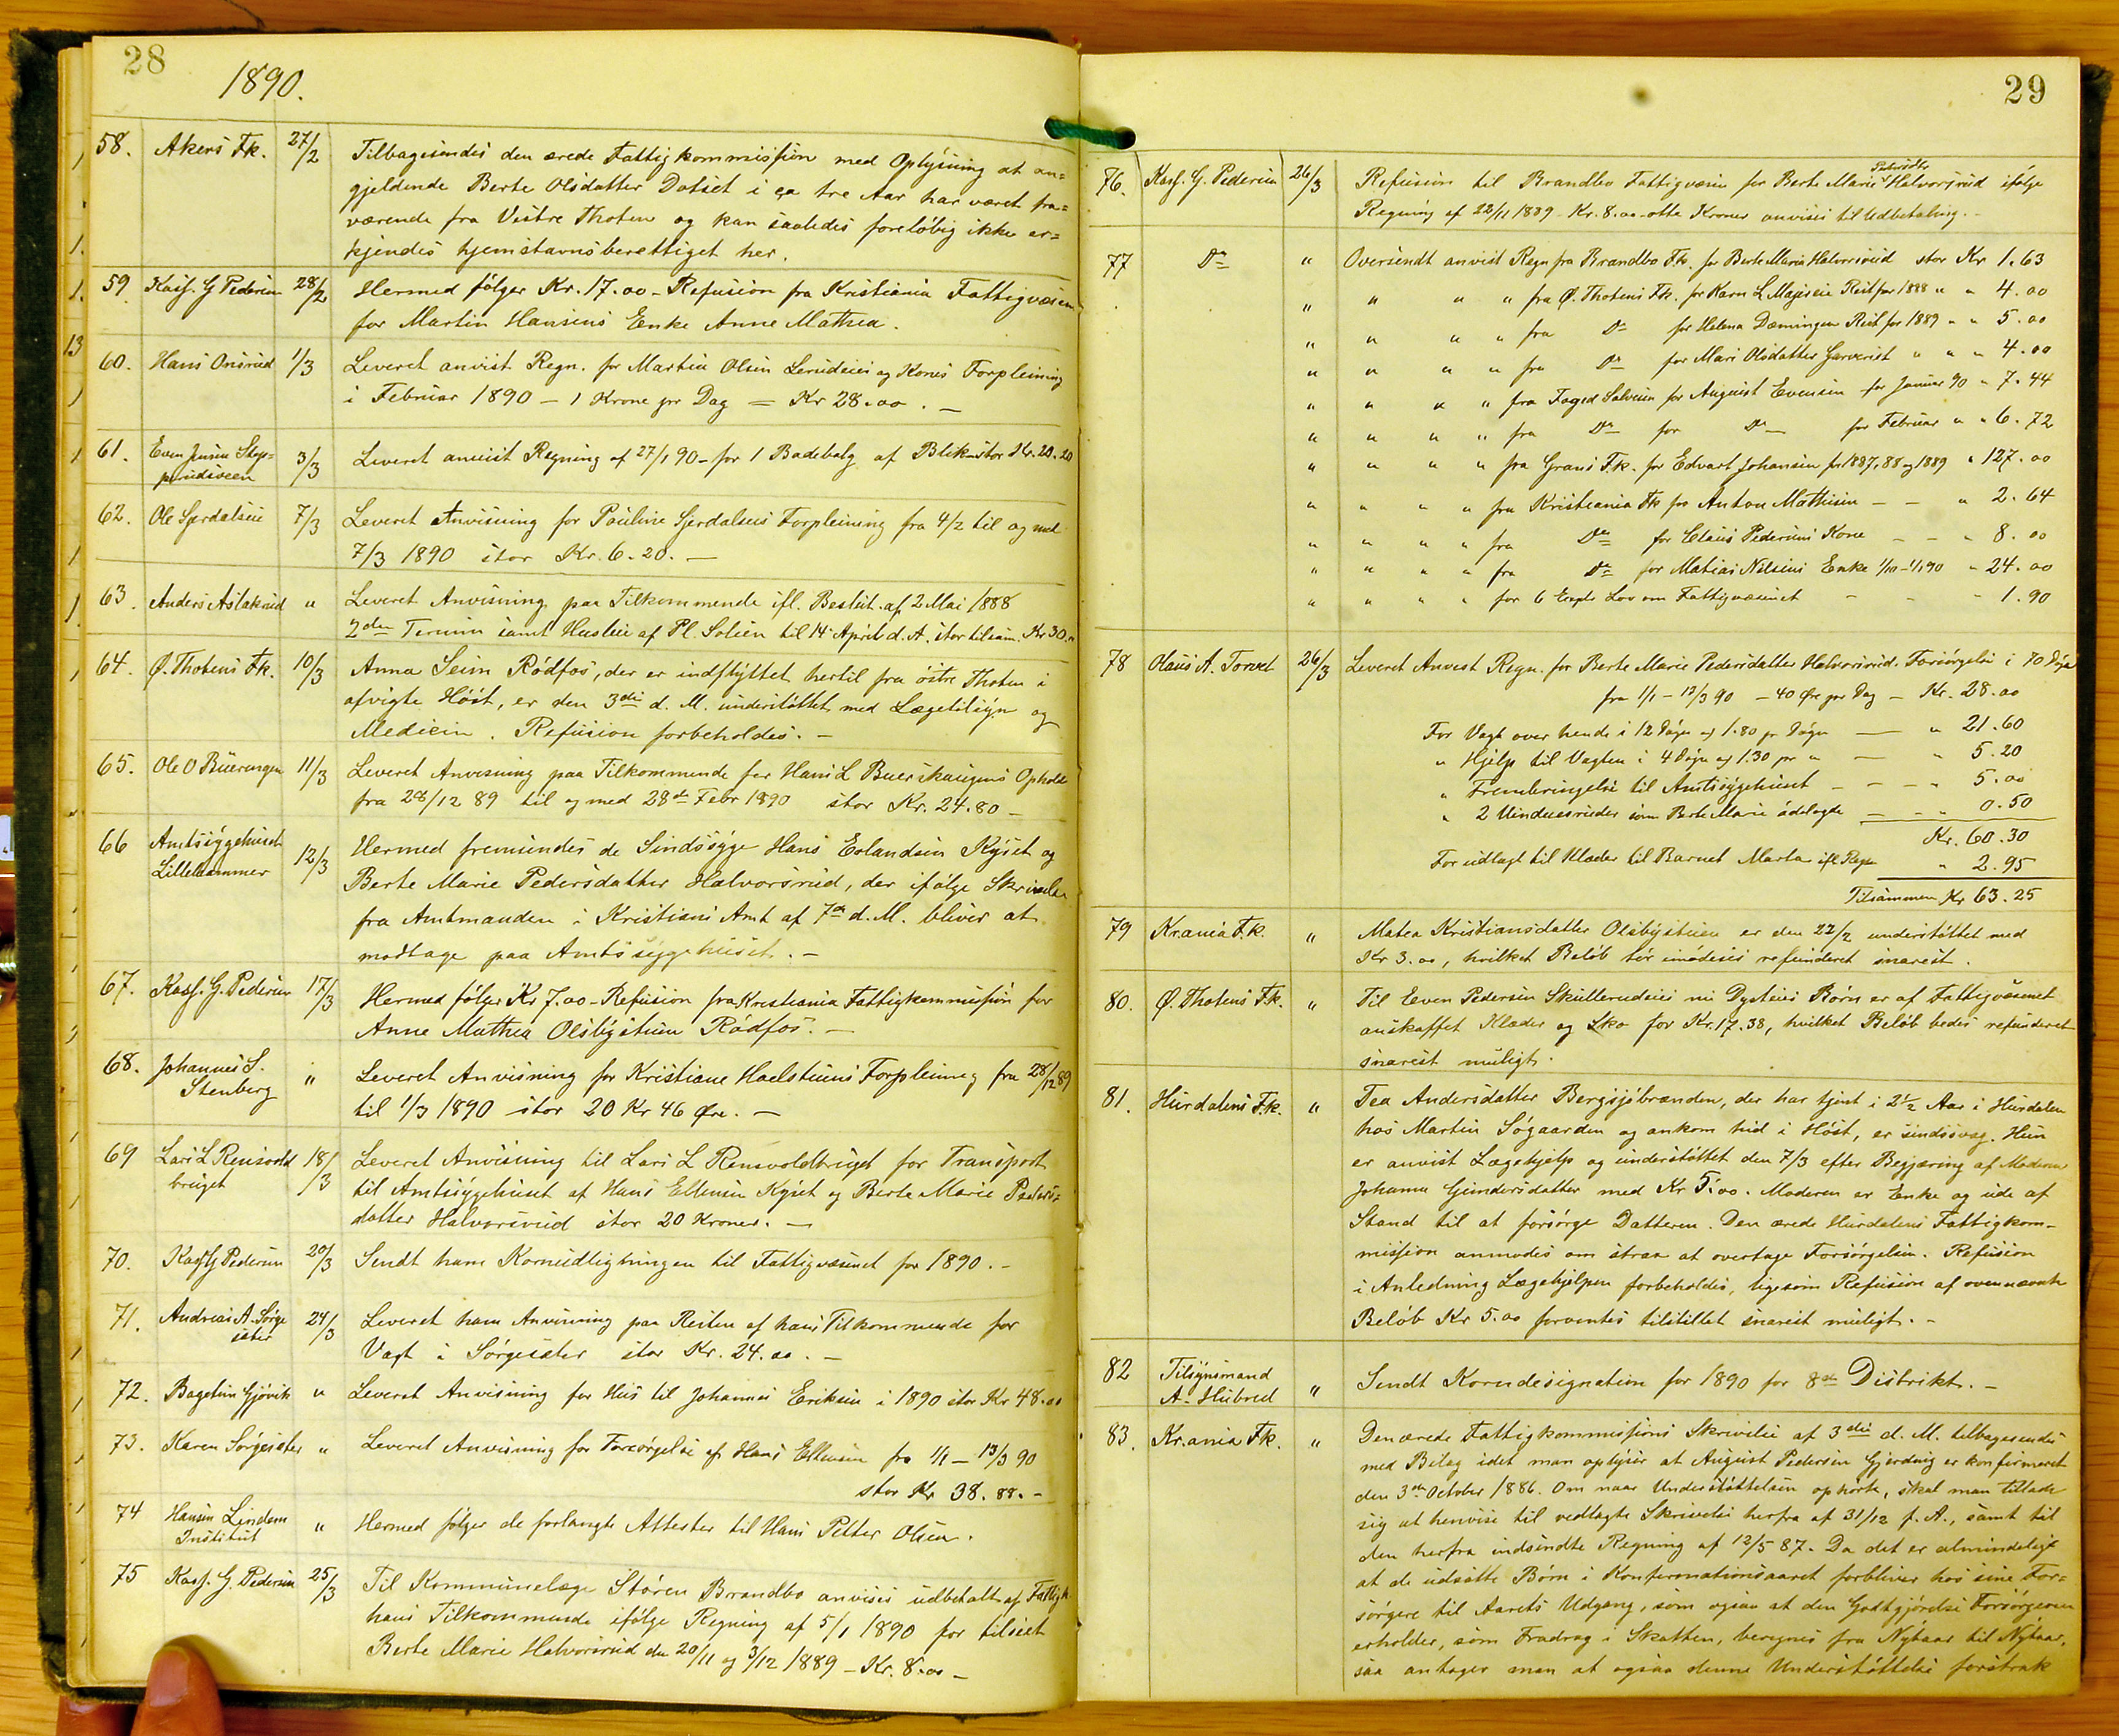 28
1890.
58. Akers Fk. 27/2 Tilbagesendes den ærede Fattigkommission med Oplysning at an=
gjeldende Berte Olsdatter Dotset i ca tre Aar har været fra=
værende fra Vestre Thoten og kan saaledes foreløbig ikke er=
kjendes hjemstavnsberettiget her.
59 Kass. G Pedersen 28/2 Hermed følger Kr. 17.00 - Refusion fra Kristiania Fattigvæsen
for Martin Hansens Enke Anne Mathea.
60. Hans Onsrud 1/3 Leveret anvist Regn. for Martin Olsen Lerudeies og Kones Forpleining
i Februar 1890 - 1 Krone pr Dag = Kr 28.00. -
61. Even Jensen Skje=
prudsveen 3/3 Leveret anvist Regning af 27/1 90 - for 1 Badebalg af Blik - stor Kr. 20.20
62. Ole Gjerdalseie 7/3 Leveret Anvisning for Pauline Gjerdalseies Forpleining fra 4/2 til og med
7/3 1890 stor Kr. 6.20. -
63. Anders Aslakrud " Leveret Anvisning paa Tilkommende ifl. Beslut. af 2 Mai 1888
2den Termin samt Husleie af Pl. Solien til 14 April d. A. stor tilsam. Kr 30.
64. Ø. Thotens Fk. 10/3 Anna Seim Rødfos, der er indflyttet hertil fra østre Thoten i
afvigte Høst, er den 3die d. M. understøttet med Lægetilsyn og
Medicin. Refusion forbeholdes. -
65. Ole O Buerengen 11/3 Leveret Anvisning paa Tilkommende for Hans L Buerskaugens Ophold
fra 28/12 89 til og med 28de Febr 1890 stor Kr. 24.80 -
66 Amtssygehuset
Lillehammer 12/3 Hermed fremsendes de Sindssyge Hans Erlandsen Kyset og
Berte Marie Pedersdatter Halvorsrud, der ifølge Skrivelse
fra Amtmanden i Kristians Amt af 7de d. M. bliver at
modtage paa Amtssygehuset. -
67. Kass. G. Pedersen 17/3 Hermed følger Kr 7.00 - Refusion fra Kristiania Fattigkommission for
Anne Mathea Olsbystuen Rødfos. -
68. Johannes S.
Stenberg " Leveret Anvisning for Kristiane Haelstuens Forpleining fra 28/12 89
til 1/3 1890 stor 20 Kr 46 Øre. -
69 Lars L Rensvold
bruget 18/3 Leveret Anvisning til Lars L Rensvoldbruget for Transport
til Amtssygehuset af Hans Ellensen Kyset og Berte Marie Peders=
datter Halvorsrud stor 20 Kroner. -
70. Kass G Pedersen 20/3 Sendt ham Kornudligningen til Fattigvæsenet for 1890. -
71. Andreas A. Sørge
sæter 24/3 Leveret ham Anvisning paa Resten af hans Tilkommende for
Vagt i Sørgesæter stor Kr. 24.00. -
72. Bageteien Gjøvik " Leveret Anvisning for Hus til Johannes Eriksen i 1890 stor Kr 48.00
73. Karen Sørgesæter " Leveret Anvisning for Forsørgelse af Hans Ellensen fra 1/1 - 13/3 90
stor Kr 38.88. -
74 Hansen Lindem
Institut " Hermed følger de forlangte Attester til Hans Petter Olsen.
75 Kass. G. Pedersen 25/3 Til Kommunelæge Støren Brandbo anvises udbetalt af Fattigk.
hans Tilkommende ifølge Regning af 5/1 1890 for tilseet
Berte Marie Halvorsrud den 20/11 og 3/12 1889 - Kr. 8.00 -
29
76. Kass. G. Pedersen 26/3 Refusion til Brandbo Fattigvæsen for Berte Marie Pedersdtr Halvorsrud ifølge
Regning af 22/11 1889 - Kr. 8.00 - otte Kroner anvises til Udbetaling. -
77 Do " Oversendt anvist Regn fra Brandbo Fk. for Berte Marie Halvorsrud stor Kr 1.63
" " " " fra Ø. Thotens Fk. for Karn L Majseie Rest for 1888 " " 4.00
" " " " fra Do for Helena Dæmingen Rest for 1889 " " 5.00
" " " " fra Do for Mari Olsdatter Garverist " " " 4.00
" " " " fra Foged Solveien for August Evensen for Januar 90 " 7.44
" " " " fra Do for Do for Februar " " 6.72
" " " " fra Grans Fk. for Edvart Johansen for 1887, 88 og 1889 " 127.00
" " " " fra Kristiania Fk for Anton Mathisen - - " 2.64
" " " " fra Do for Claus Pedersens Kone - - " 8.00
" " " " fra Do for Matias Nilsens Enke 1/10 - 1/1 90 " 24.00
" " " " for 6 Expl Lov om Fattigvæsenet - - " 1.90
78 Olaus A. Torvet 26/3 Leveret Anvist Regn. for Berte Marie Pedersdatter Halvorsrud. Forsørgelse i 70 Døgn
fra 1/1 - 12/3 90 - 40 Øre pr Dag - Kr. 28.00
For Vagt over hende i 12 Døgn og 1.80 pr Døgn - " 21.60
" Hjelp til Vagten i 4 Døgn og 1.30 pr " - " 5.20
" Frembringelse til Amtssygehuset - - - " 5.00
" 2 Vinduesruder som Berte Marie ødelagde - - " 0.50
Kr. 60.30
For udlagt til Klæder til Barnet Marta ifl. Regn " 2.95
Tilsammen Kr 63.25
79 Kr.ania F.k. " Matea Kristiansdatter Olsbystuen er den 22/2 understøttet med
Kr 3.00, hvilket Beløb tør imødeses refunderet snarest.
80. Ø. Thotens F.k. " Til Even Pedersen Skullerudeies nu Dysteies Børn er af Fattigvæsenet
anskaffet Klæder og Sko for Kr. 17.38, hvilket Beløb bedes refunderet
snarest muligt.
81. Hurdalens F.k. " Tea Andersdatter Bergsjøbrænden, der har tjent i 2½ Aar i Hurdalen
hos Martin Søgaarden og ankom hid i Høst, er sindssvag. Hun
er anvist Lægehjelp og understøttet den 7/3 efter Begjæring af Moderen
Johanna Gundersdatter med Kr 5.00. Moderen er Enke og ude af
Stand til at forsørge Datteren. Den ærede Hurdalens Fattigkom-
mission anmodes om strax at overtage Forsørgelsen. Refusion
i Anledning Lægehjelpen forbeholdes, ligesom Refusion af ovennævnte
Beløb Kr 5.00 forventes tilstillet snarest muligt. -
82 Tilsynsmand
A. Hubred " Sendt Korndesignation for 1890 for 8de Distrikt. -
83. Kr.ania Fk. " Den ærede Fattigkommissions Skrivelse af 3die d. M. tilbagesendes
med Bilag idet man oplyser at August Pedersen Gjerdnig er konfirmeret
den 3de October 1886. Om naar Understøttelsen ophørte, skal man tillade
sig at henvise til vedlagte Skrivelse herfra af 31/12 f. A., samt til
den herfra indsendte Regning af 12/5 87. Da det er almindeligt
at de udsatte Børn i Konfirmationsaaret forbliver hos sine For=
sørgere til Aarets Udgang, som ogsaa at den Godtgjørelse Forsørgeren
erholder, som Fradrag i Skatten, beregnes fra Nytaar til Nytaar,
saa antager man at ogsaa denne Understøttelse forstrak